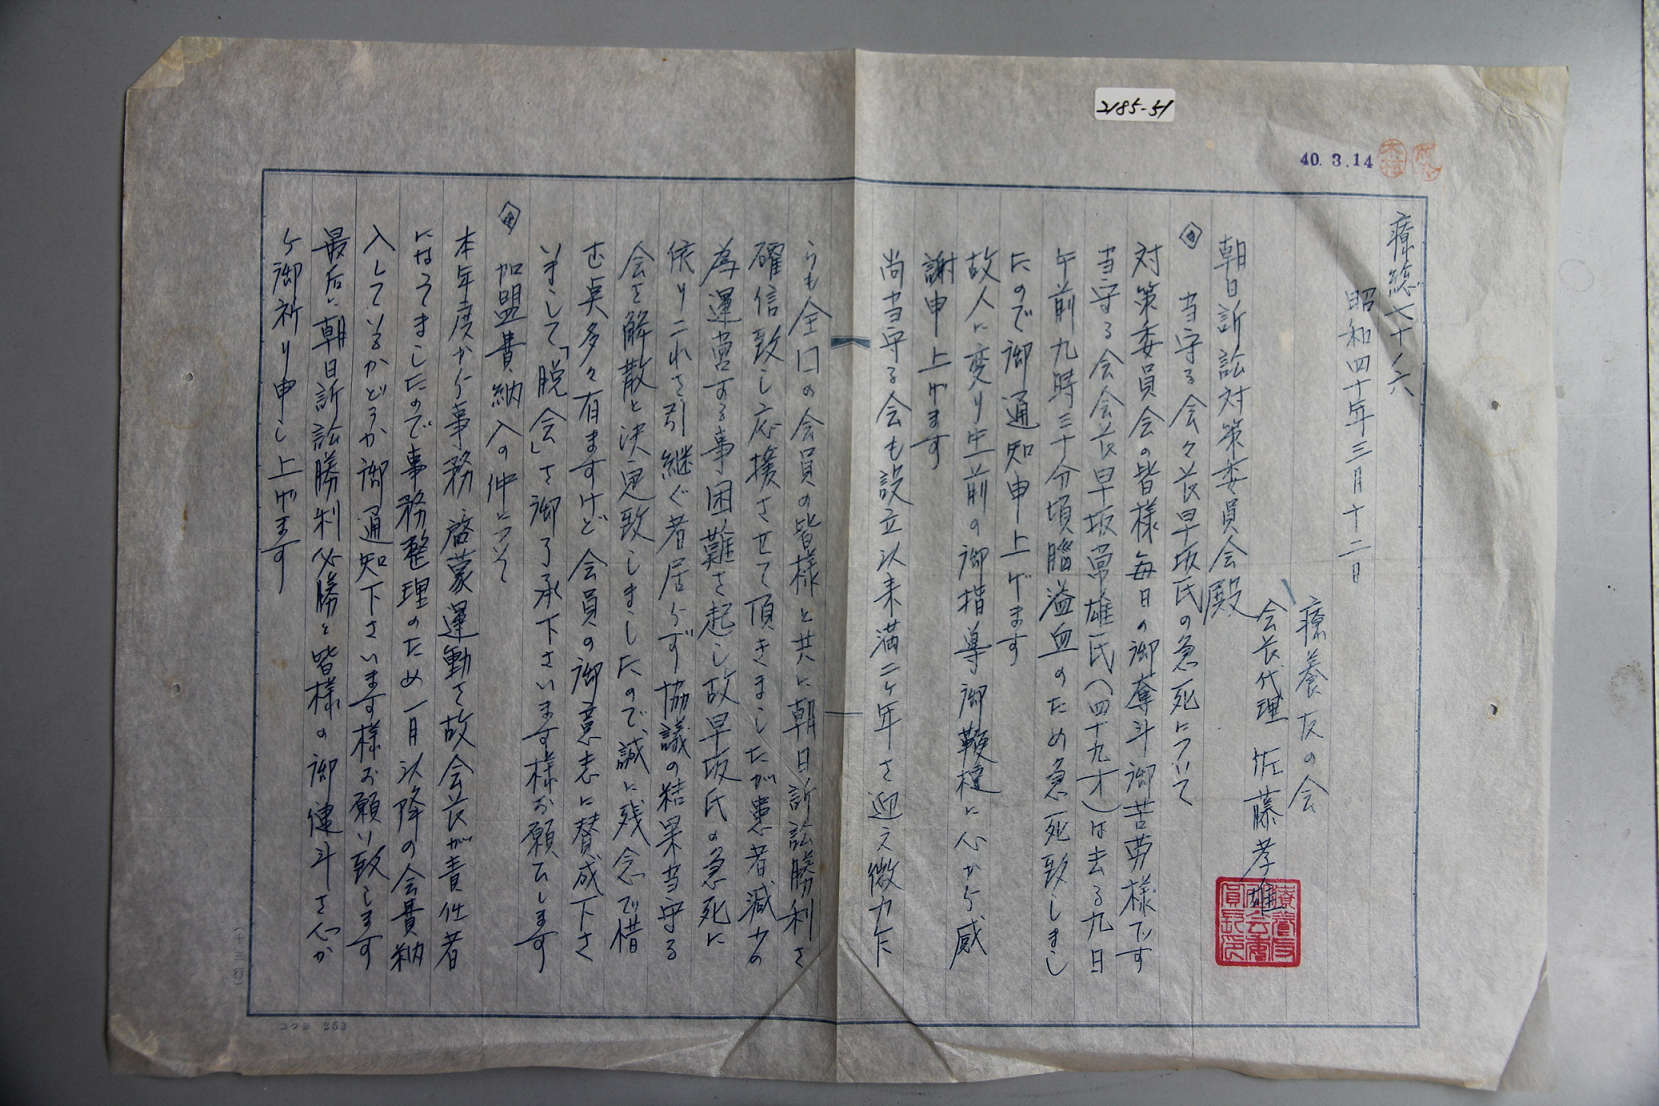 2185-51
40.3.14
療総六十ノ六
昭和四十年三月十二日
療養友の会
会長代理 佐藤孝雄
朝日訴訟対策委員会殿
当守る会々長早坂氏の急死について
対策委員会の皆様毎日の御奮斗御苦労様です
当守る会会長早坂常雄氏(四十九才)は去る九日
午前九時三十分頃脳溢血のため急死致しまし
たので御通知申上げます
故人に変り生前の御指導御鞭撻に心から感
謝申上げます
尚当守る会も設立以来満二ヶ年を迎え微力乍
らも全国の会員の皆様と共に朝日訴訟勝利を
確信致し応援させて頂きましたが患者減少の
為運営する事困難を起し故早坂氏の急死に
依りこれを引継ぐ者居らず協議の結果当守る
会を解散と決定致しましたので誠に残念で惜
む点多々有ますけど会員の御意志に賛成下さ
いまして「脱会」を御了承下さいます様お願い致します
加盟費納入の件について
本年度から事務 啓蒙運動を故会長が責任者
になってましたので事務整理のため一月以降の会費納
入しているかどうか御通知下さいます様お願い致します
最后に朝日訴訟勝利必勝と皆様の御健斗を心か
ら御祈り申し上げます
コクヨ 253